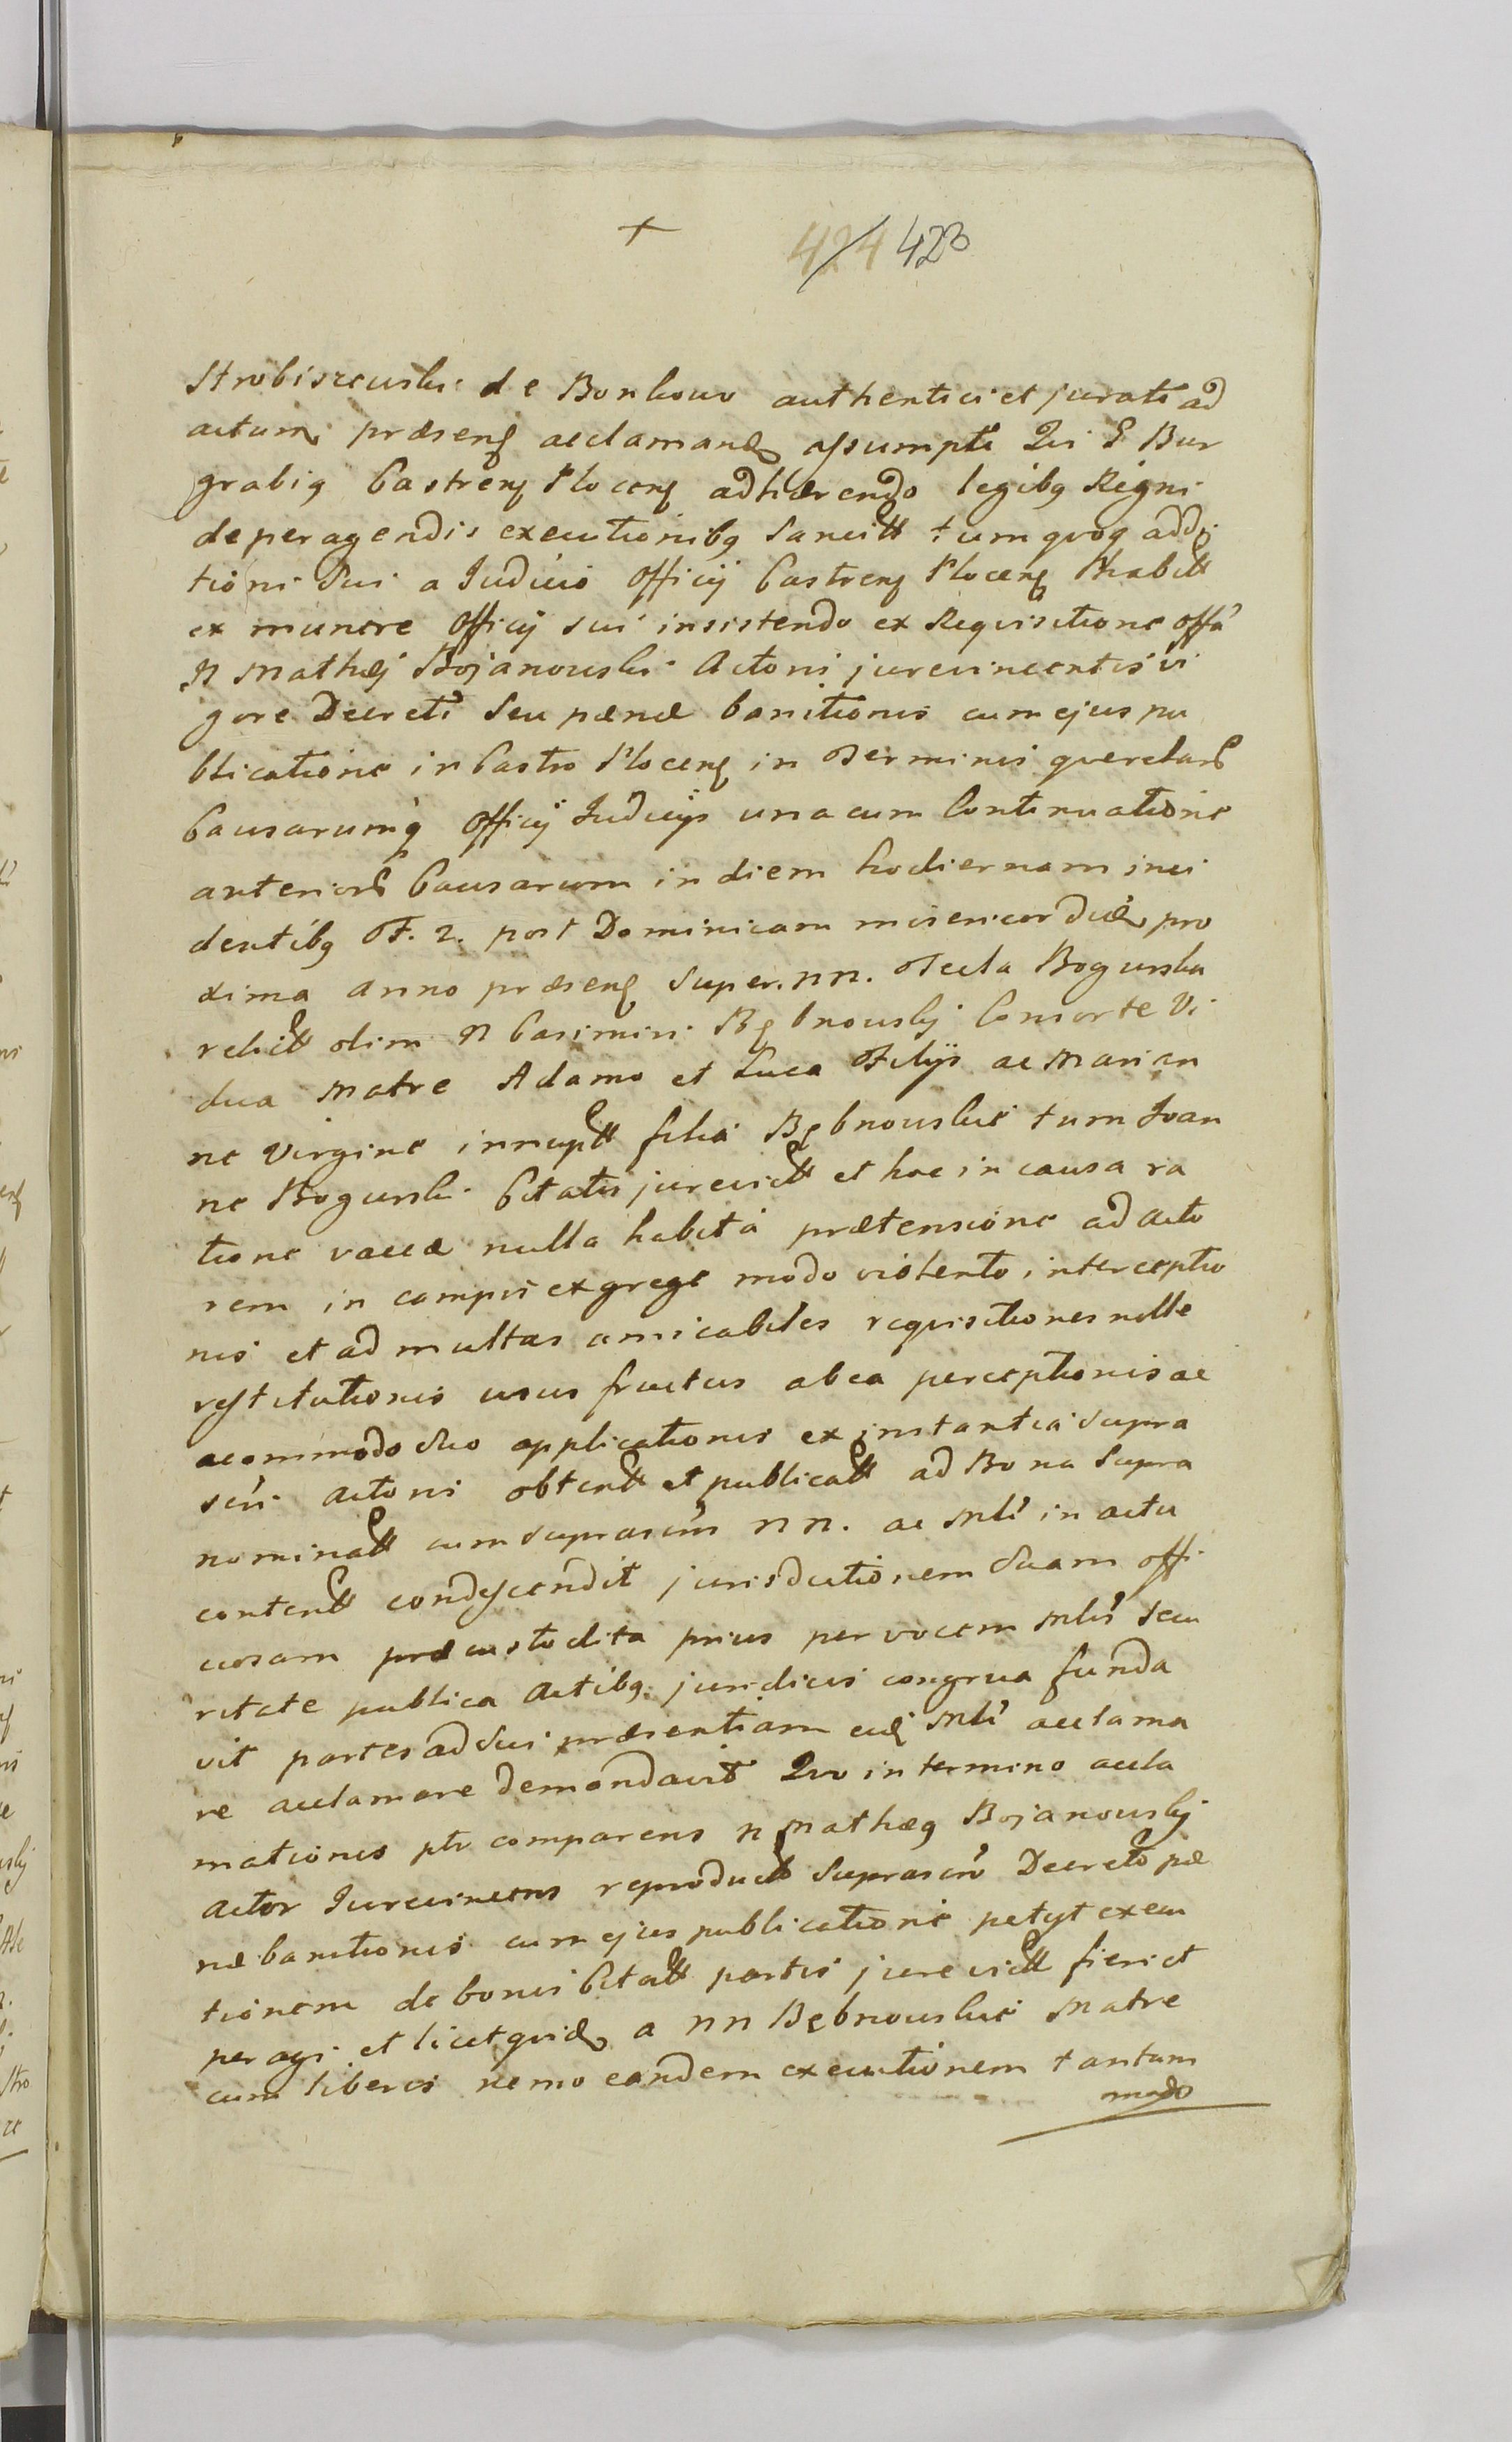 + 424 423
Strobiszewski de Bonkowo authentici et jurati ad
actum præsenš acclamanđ assumpti Qui G Bur
grabiꝯ Castrenš Plocenš adhærendo legibꝯ Regni
de peragendis executionibꝯ sancitt tum quoqꝫ addi
tioni sui a Judicio Officij Castrenš Plocenš habitt
ex munere Officij sui insistendo ex Requisitione offa
N Mathæj Bojanowski Actoris jurevincentis vi
gore Decreti seu pænæ banitionis cum ejus pu
blicatione in Castro Plocenš in Terminis querelarꝫ
Causarumqꝫ Officij Judicijs una cum Continuatione
anteriorꝫ Causarum in diem hodiernam inci
dentibꝯ F. 2. post Dominicam misericordiæ pro
xima anno præsenš super nn. Tecla Bogurska
relictt olim N Casimiri Bębnowskj Consorte Vi
dua Matre Adamo et Luca Filijs ac Marian
ne Virgine innuptt filia Bębnowskie tum Joan
ne Bogurski Citatis jurevictt et hoc in causa ra
tione vaccæ nulla habita prætensione ad acto
rem in campis ex grege modo violento interceptio
nis et ad multas amicabiles requisitiones nulle
restitutionis usus fructus ab ea perceptionis ac
accommodo suo applicationis ex instantia supra
scri Actoris obtentt et publicatt ad Bona supra
nominatt cum suprascris nn. ac Mli in actu
contentt condescendit jurisdictionem suam offi
ciosam præcustodita prius per vocem Mlis secu
ritate publica Actibꝯ juridicis congrua funda
vit partes ad sui præsentiam eidꝫ Mli acclama
re acclamare demandavit Quo in termino accla
mationis ptr comparens N Mathæꝯ Bojanowskj
Actor Jurevincens reproducto suprascro Decreto pæ
næ banitionis cum ejus publicatione petyt execu
tionem de bonis Citatt partis jurevictt fieri et
peragi et licet quidꝫ a nn Bębnowskie Matre
cum liberis nemo eandem executionem tantum
modo